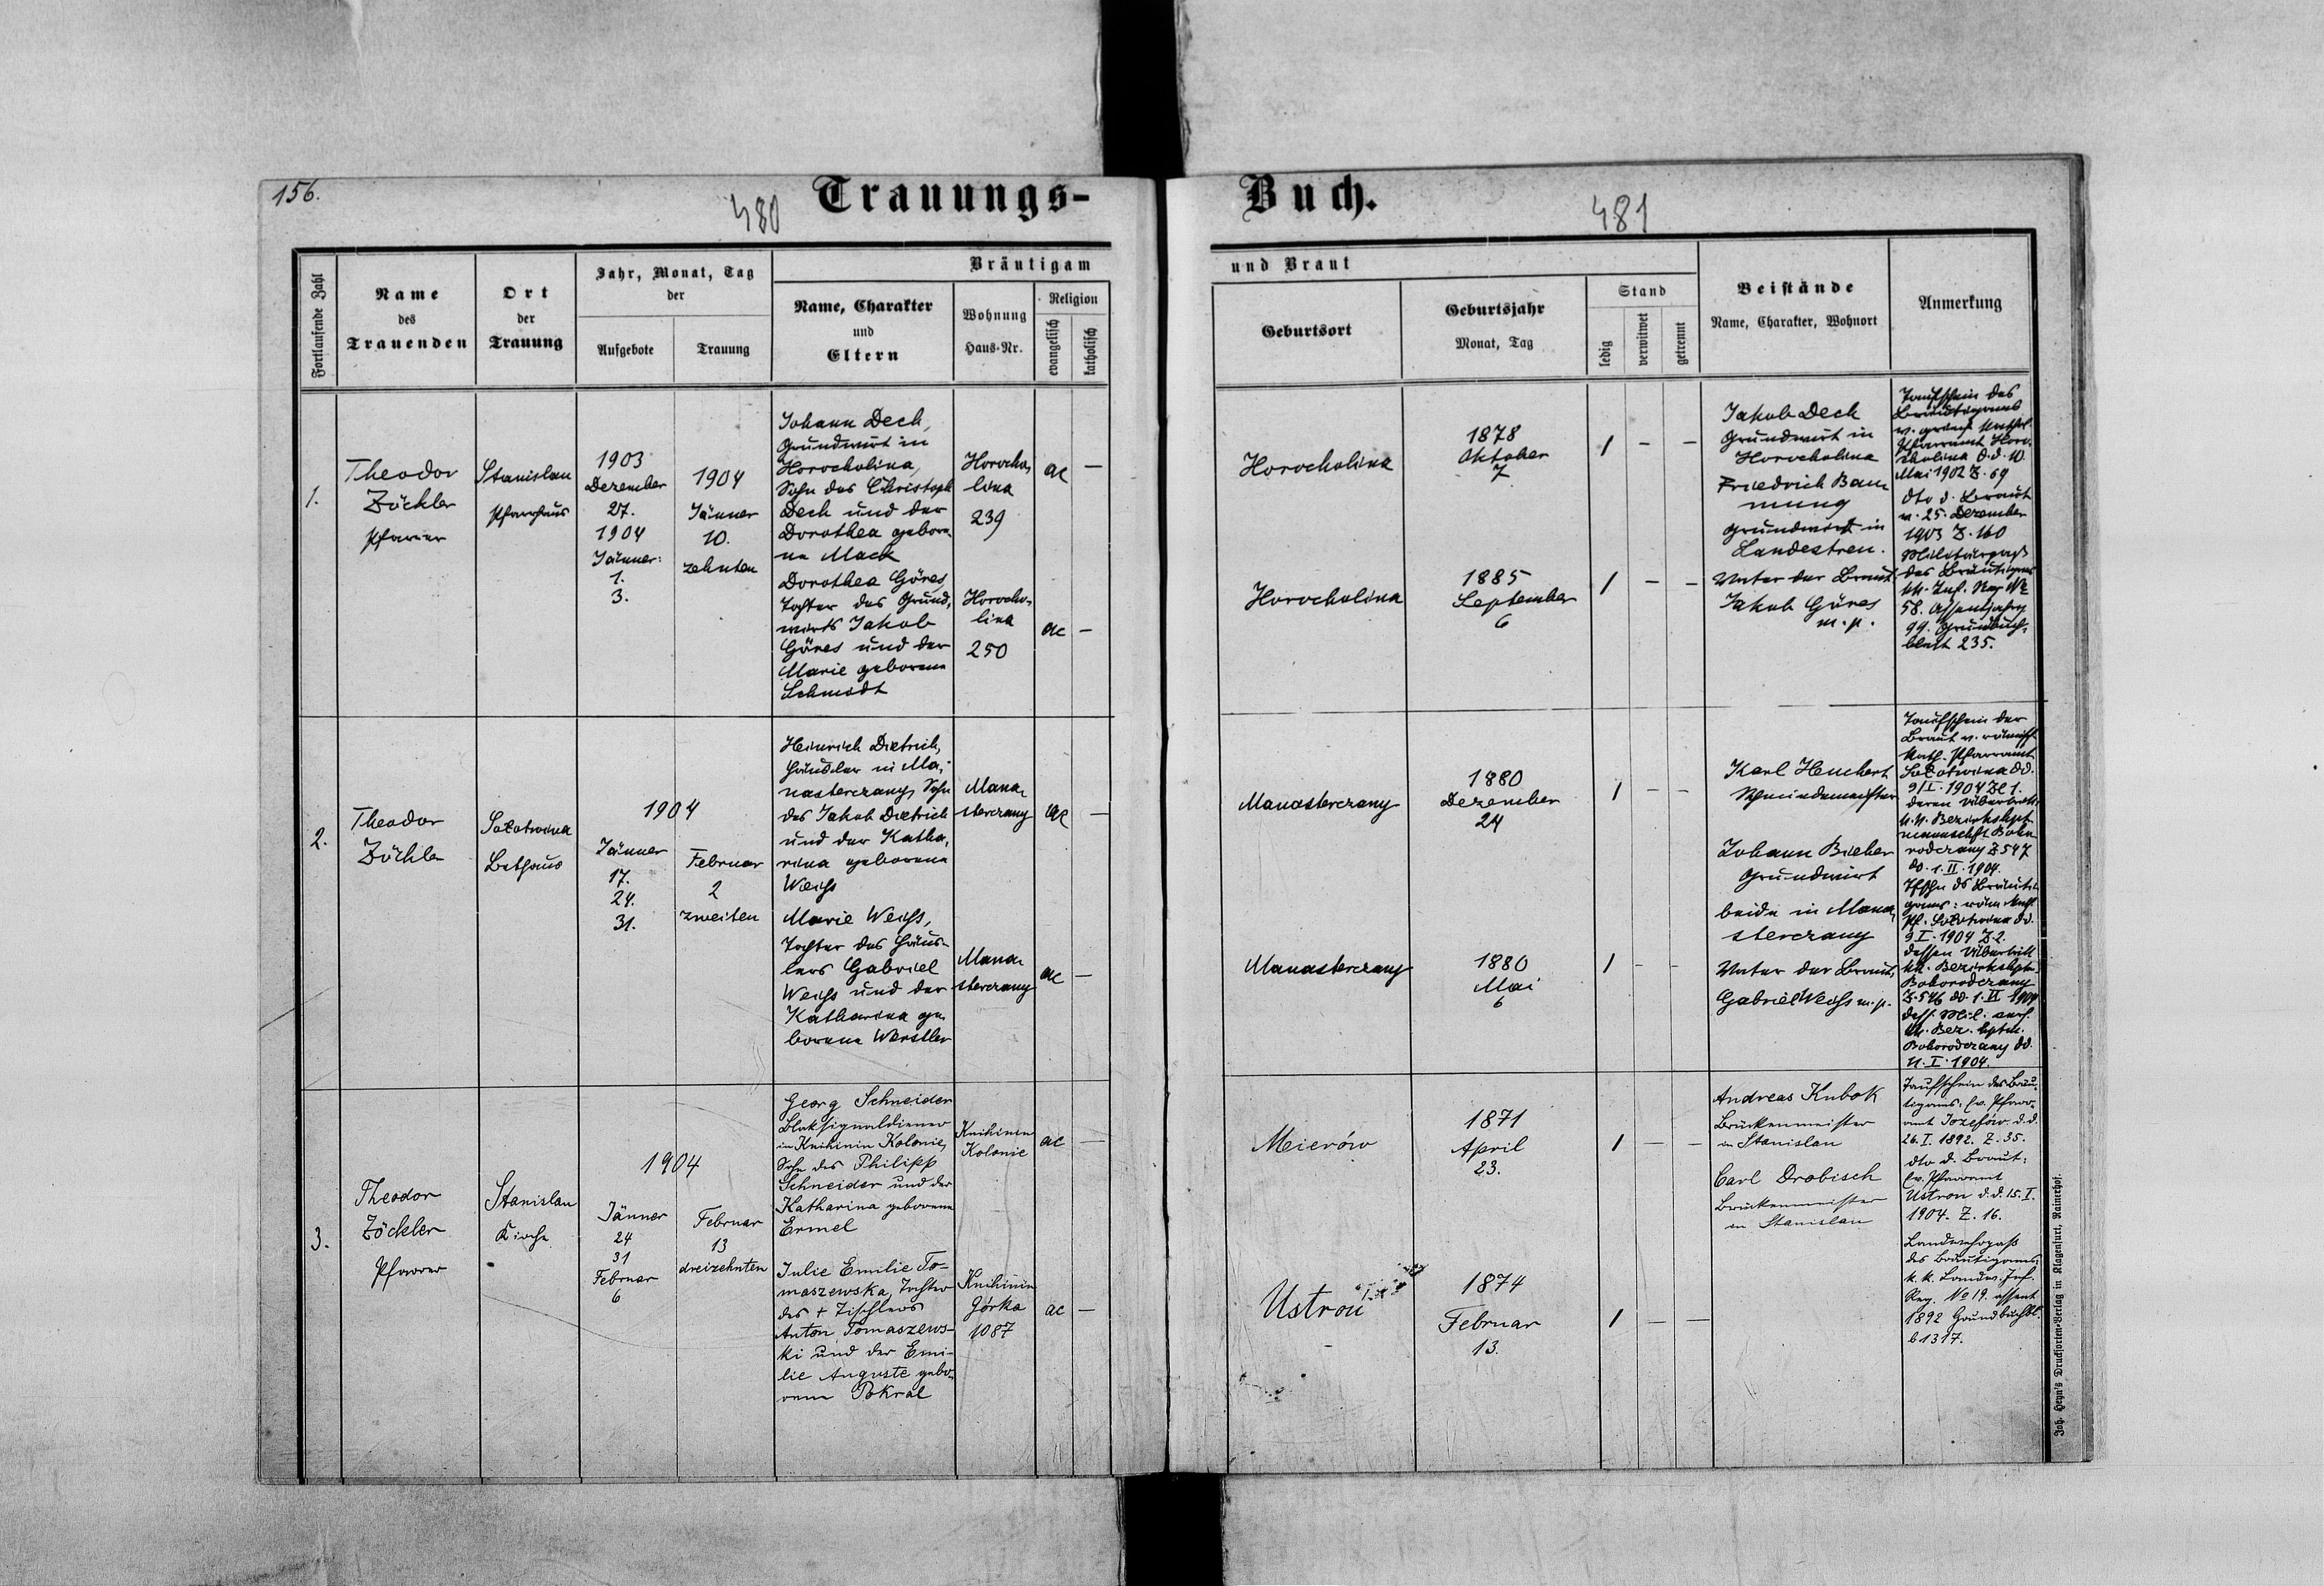 156.
480
Trauungs-
Fortlaufende Zahl
Name
des
Trauenden
Ort
der
Trauung
Jahr, Monat, Tag
der
Aufgebote
Trauung
Bräutigam
Name, Charakter
und
Eltern
Wohnung
Haus-Nr.
Religion
evangelisch
katholisch
1.
Theodor
Zöckler
Pfarrer
Stanislau
Pfarrhaus
1903
Dezember
27.
1904
Jänner:
1.
3.
1904
Jänner
10.
zehnten
Johann Dech,
Grundwirt in
Horocholina,
Sohn des Christoph
Dech und der
Dorothea gebore-
ne Mack
Horocho-
lina
239
ac
—
Dorothea Göres,
Tochter des Grund-
wirts Jakob
Göres und der
Marie geborene
Schmidt
Horocho-
lina
250
ac
—
2.
Theodor
Zöckler
Sołotwina
Bethaus
1904
Jänner
17.
24.
31.
Februar
2
zweiten
Heinrich Dietrich,
Häusler in Ma-
nasterczany, Sohn
des Jakob Dietrich
und der Katha-
rina geborene
Weiß
Mana-
sterczany
ac
—
Marie Weiß,
Tochter des Häus-
lers Gabriel
Weiß und der
Katharina ge-
borene Wanstler
Mana-
sterczany
ac
—
3.
Theodor
Zöckler
Pfarrer
Stanislau
Kirche
1904
Jänner
24
31
Februar
6
Februar
13
dreizehnten
Georg Schneider
Bloksignaldiener
in Knihinin Kolonie,
Sohn des Philipp
Schneider und der
Katharina geborene
Ermel
Knihinin
Kolonie
ac
—
Julie Emilie To-
maszewska, Tochter
des + Tischlers
Anton Tomaszews-
ki und der Emi-
lie Auguste gebo-
rene Pokral
Knihinin
Górka
1087
ac
—
Buch.
481
und Braut
Geburtsort
Geburtsjahr
Monat, Tag
Stand
ledig
verwitwet
getrennt
Beistände
Name, Charakter, Wohnort
Anmerkung
Horocholina
1878
Oktober
7
1 — —
Jakob Dech
Grundwirt in
Horocholina
Friedrich Bam
mung
Grundwirt in
Landestreu.
Horocholina
1885
September
6
1 — —
Vater der Braut:
Jakob Göres
m. p.
Taufschein des
Bräutigams
v. griech. kathol.
Pfarramt Horo-
cholina d. d. 10.
Mai 1902 Z. 69
dto d. Braut
v. 25. Dezember
1903 Z. 160
Militärpaß
des Bräutigams
kk. Inf. Reg. No
58. Assentjahr
99. Grundbuch-
blatt 235.
Manasterczany
1880
Dezember
24
1 — —
Karl Heuchert
Schmiedemeister
Johann Bieber
Grundwirt
beide in Mana-
sterczany
Manasterczany
1880
Mai
6
1 — —
Vater der Braut:
Gabriel Weiß m. p.
Taufschein der
Braut v. römisch
kath. Pfarramt
Sołotwina dd.
9/I. 1904 Zl 1.
deren Übertritt:
k. k. Bezirkshpt-
mannschft Boho-
rodczany Z 547
dd. 1. II. 1904.
Tfschn ds Bräuti-
gams: röm. kath.
Pf. Sołotwina dd.
9 I. 1904 Z 2.
dessen Übertritt
kk. Bezirkshptm.
Bohorodczany
Z. 546 dd. 1. II 1904
kk. Bez. hptm.
Bohorodczany dd.
11. I. 1904.
Meierów
1871
April
23.
1 — —
Andreas Kubok
Brückenmeister
in Stanislau
Carl Drobisch
Brückenmeister
in Stanislau
Ustron
1874
Februar
13.
1 — —
Taufschein des Bräu-
tigams: Ev. Pfarr-
amt Josefów. d. d.
26. I. 1892. Z. 35.
dto d. Braut:
Ev. Pfarramt
Ustron d. d. 15. I.
1904. Z. 16.
Landwehrpaß
des Bräutigams:
k. k. Landw. Inf.
Reg. No 19. assent
1892 Grundbuchbl.
b 1317.
Joh. Heyn's Drucksorten-Verlag in Klagenfurt, Rainerhof.